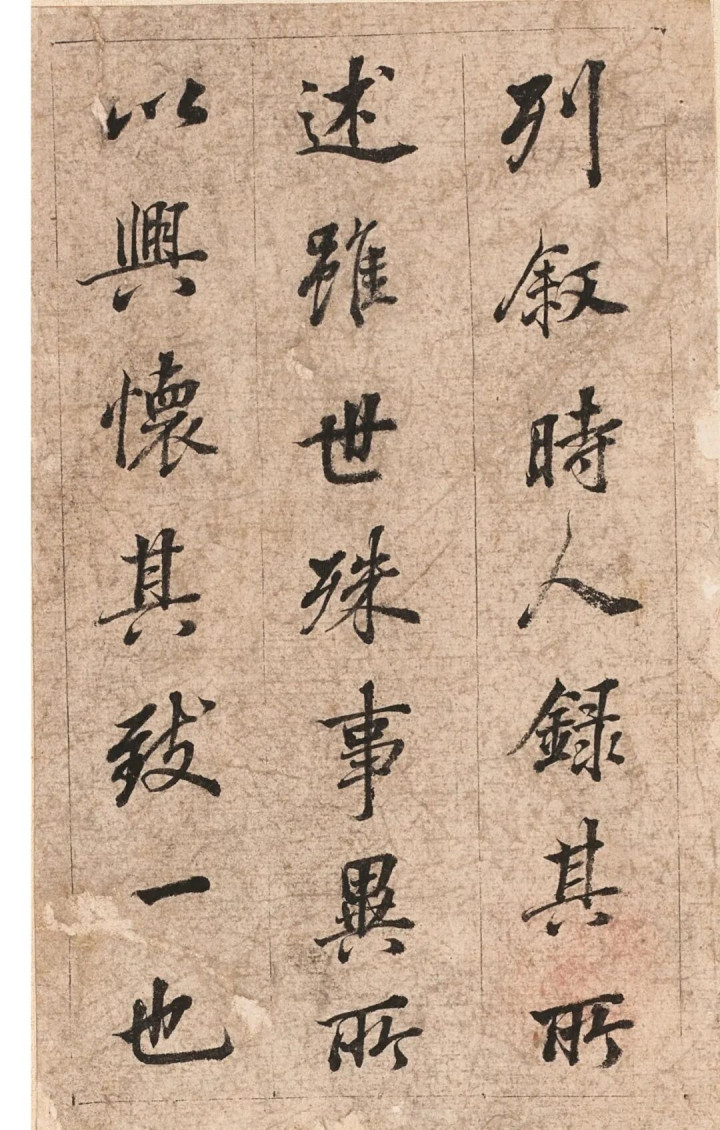 列叙時人録其所
述雖世殊事異所
以興懷其致一也